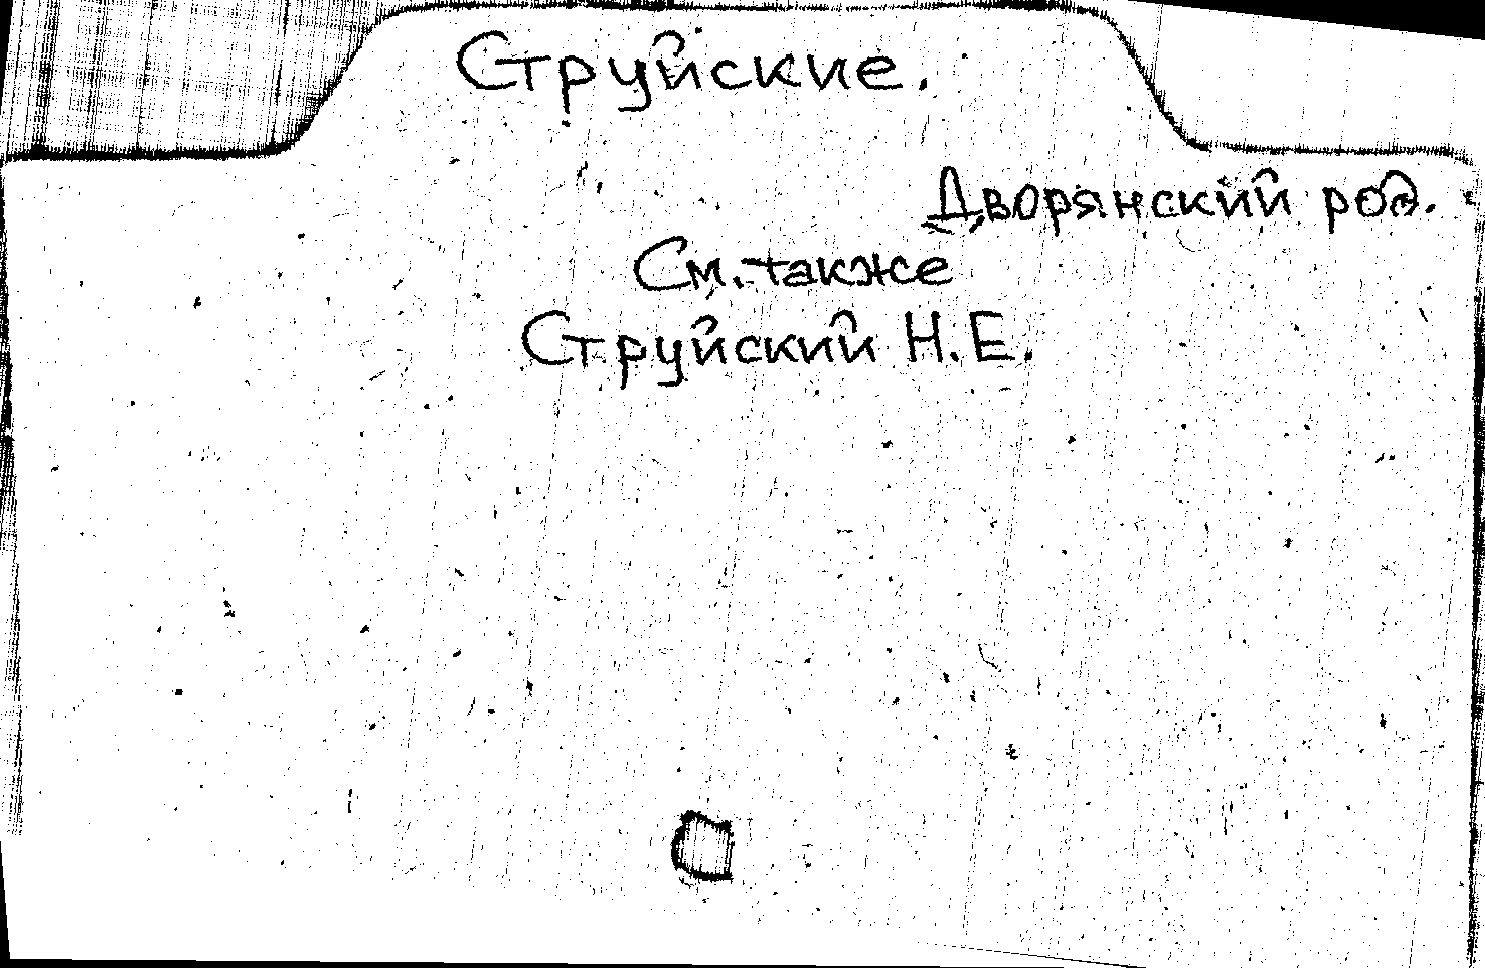 Струйские.
Дворянский род.
См. также
Струйский Н. Е.